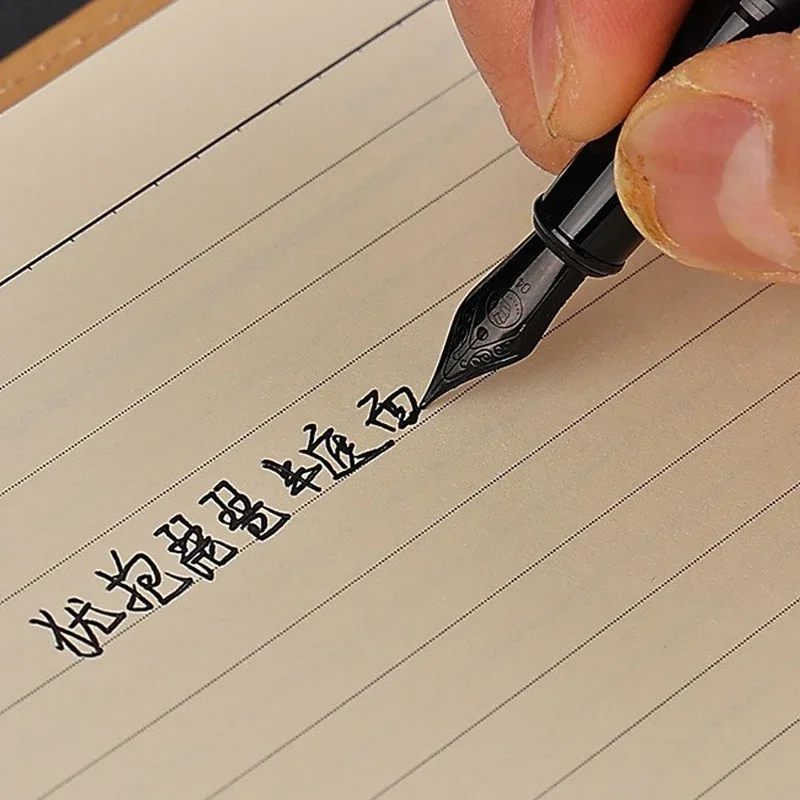 犹抱琵琶半遮面